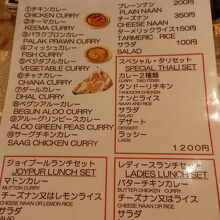 ①チキンカレー
CHICKEN CURRY
②キーマカレー
KEEMA CURRY
③パラクプロウンカレー
PALAK PRAWN CURRY
④フィッシュカレー
FISH CURRY
⑤ベジタブルカレー
VEGETABLE CURRY
⑥チャナカレー
CHANA CURRY
⑦ダルカレー
DHAL CURRY
⑧ベグンアルーカレー
BEGUN ALOO CURRY
⑨アルーグリンピースカレー
ALOO GREEN PEAS CURRY
⑩サーグチキンカレー
SAAG CHICKEN CURRY
プレーンナン 200円
PLAIN NAAN
チーズナン 350円
CHEESE NAAN
ターメリックライス 150円
TARMERIC RICE
サラダ 100円
SALAD
スペシャル・タリセット
SPECIAL THALI SET
カレー2種類
2 CURRY
タンドーリチキン
TANDOORI CHICKEN
ナンとライス
NAAN AND RICE
サラダ
SALAD
デザート
DESSERT
ラッシー
LASSI
1200円
ジョイプールランチセット
JOYPUR LUNCH SET
マトンカレー
MUTTON CURRY
チーズナン又はレモンライス
CHEESE NAAN OR LEMON RICE
サラダ
SALAD
レディースランチセット
LADIES LUNCH SET
バターチキンカレー
BUTTER CHICKEN CURRY
チーズナン又はライス
CHEESE NAAN OR RICE
サラダ